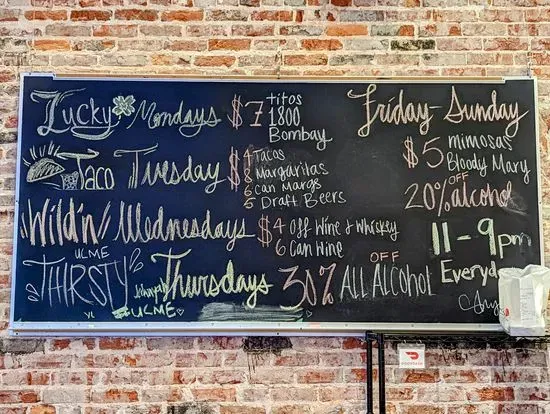 Lucky Mondays $7 titos
1800
Bombay
Taco Tuesday $4 Tacos
8 Margaritas
6 Can Margs
5 Draft Beers
Wild'n Wednesdays $4 off Wine & Whiskey
6 Can Wine
UCME
THIRSTY Thursdays 30% OFF
ALL ALCOHOL
UCME
Friday-Sunday
$5 mimosas
Bloody Mary
20% OFF alcohol
11-9pm
DOORDASH